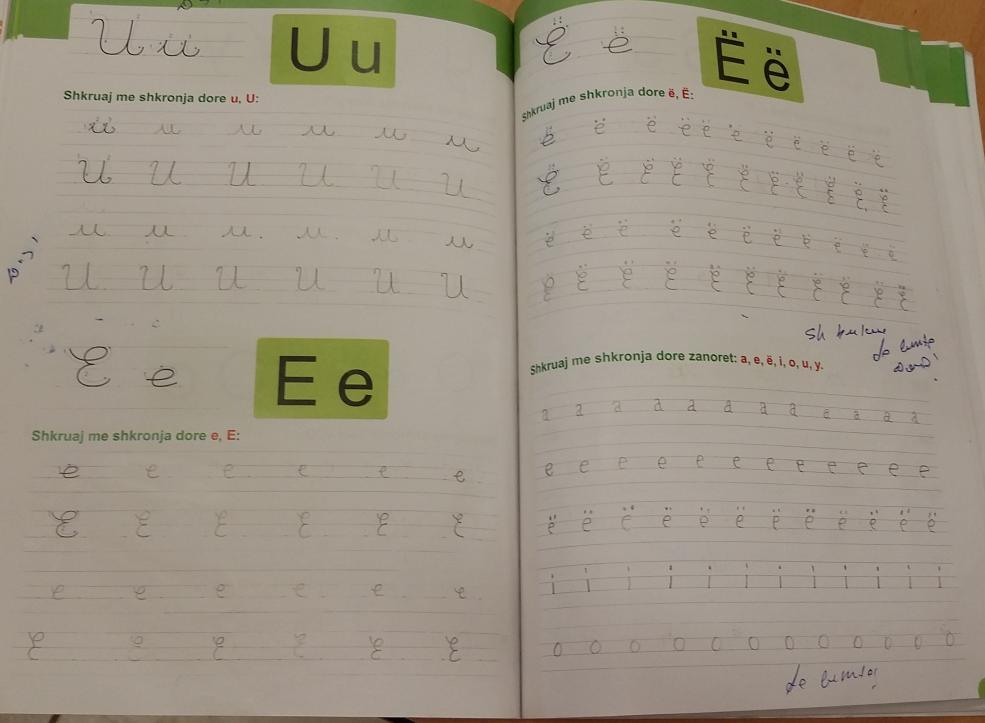 U u
U u
Shkruaj me shkronja dore u, U:
u u u u u u
U U U U U U
u u u u u u
U U U U U U
E e
E e
Shkruaj me shkronja dore e, E:
e e e e e e
E E E E E E
e e e e e e
E E E E E E
Ë ë
Ë ë
Shkruaj me shkronja dore ë, Ë:
ë ë ë ë ë ë ë ë ë ë ë
Ë Ë Ë Ë Ë Ë Ë Ë Ë Ë Ë
ë ë ë ë ë ë ë ë ë ë ë
Ë Ë Ë Ë Ë Ë Ë Ë Ë Ë Ë
Shkruaj me shkronja dore zanoret: a, e, ë, i, o, u, y.
a a a a a a a a a a a a
e e e e e e e e e e e e
ë ë ë ë ë ë ë ë ë ë ë ë
i i i i i i i i i i i i
o o o o o o o o o o o o